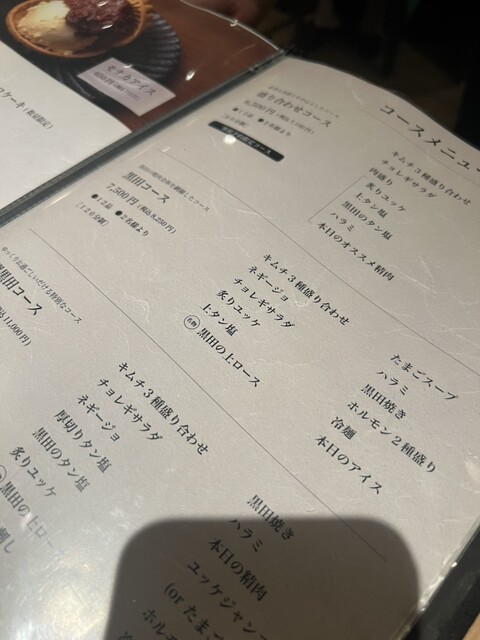 モナカアイス
コースメニュー
盛り合わせコース
6,500円
●2名様より
キムチ3種盛り合わせ
チョレギサラダ
肉盛り
炙りユッケ
黒田のタン塩
上タン塩
ハラミ
本日のオススメ精肉
黒田コース
7,500円(税込8,250円)
●12品 ●2名様より
[120分制]
キムチ3種盛り合わせ
ネギージョ
チョレギサラダ
炙りユッケ
上タン塩
黒田の上ロース
たまごスープ
ハラミ
黒田焼き
ホルモン2種盛り
冷麺
本日のアイス
黒田コース
11,000円)
キムチ3種盛り合わせ
チョレギサラダ
ネギージョ
厚切りタン塩
黒田のタン塩
炙りユッケ
黒田の上ロー
刺し
黒田焼き
ハラミ
本日の精肉
ユッケジャン
(or たまご
ホルモ